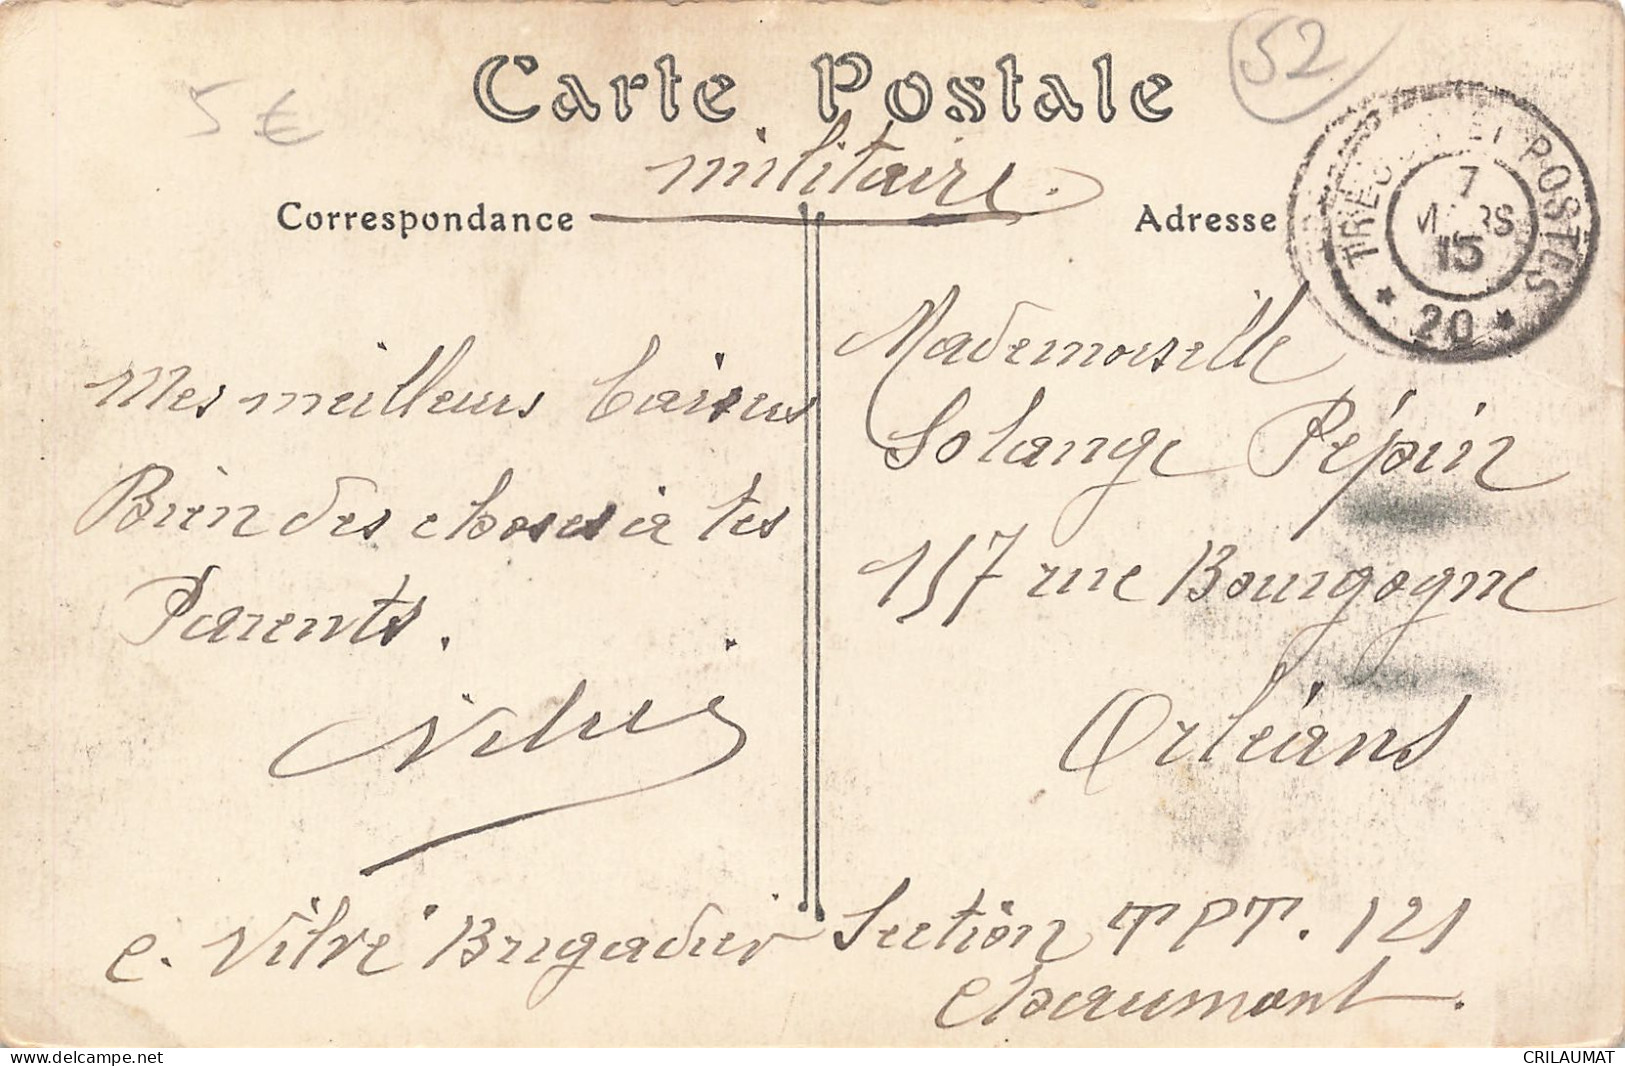 52
5 €
Carte Postale
militaire.
Correspondance
Adresse
TRESOR ET POSTES
7
MARS
15
* 20 *
Mes meilleurs baisers
Bien des choses à tes
Parents.
Mademoiselle
Solange Pépin
157 rue Bourgogne
Orléans
C. Vitré Brigadier Section TPT. 121
Chaumont.
www.delcampe.net
CRILAUMAT